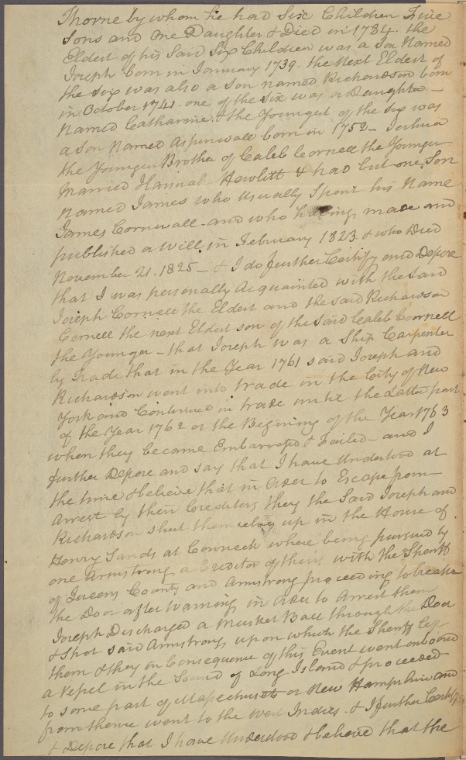 Thorne by whom he had Six Children Five
Sons and One Daughter & Died in 1784. the
Eldest of his Said Six Children was a Son Named
Joseph born in January 1739. the Next Eldest of
the Six was also a Son named Richardson born
in October 1741. one of the Six was a Daughter
Named Catharine. & the Youngest of the Six was
a Son Named Aspinwall born in 1752 - Joshua
the Younger Brother of Caleb Cornell the Younger
Married Hannah Hewlitt & had but one Son
Named James who Usually Spent his Name
James Cornwall - and who having made and
published a Will, in February 1823 & who Died
November 21. 1825 - & I do further Certify and Depose
that I was personally Acquainted with the Said
Joseph Cornell the Eldest and the Said Richardson
Cornell the next Eldest Son of the Said Caleb Cornell
the Younger - that Joseph was a Ship Carpenter
by Trade that in the Year 1761 said Joseph and
Richardson went into trade in the City of New
York and Continued in trade untill the latter part
of the Year 1762 or the Begining of the Year 1763
when they became Embarrassed & failed - and I
further Depose and Say that I have Understood at
the time & believe that in order to Escape from
Arrest by their Creditors they the Said Joseph and
Richardson Shut themselves up in the House of
Henry Sands at Cowneck where being pursued by
one Armstrong a Creditor of theirs with the Sheriff
of Queens County and Armstrong proceeding to break
the Door after Warning in order to Arrest them
Joseph Discharged a Musket Ball through the Door
& Shot said Armstrong upon which the Sheriff left
them & they in Consequence of this Event went onboard
a Vessel in the Sound of Long Island & proceeded
to some part of Massachusetts or New Hampshire and
from thence went to the West Indies. & I further Certify
& Depose that I have Understood & believe that the